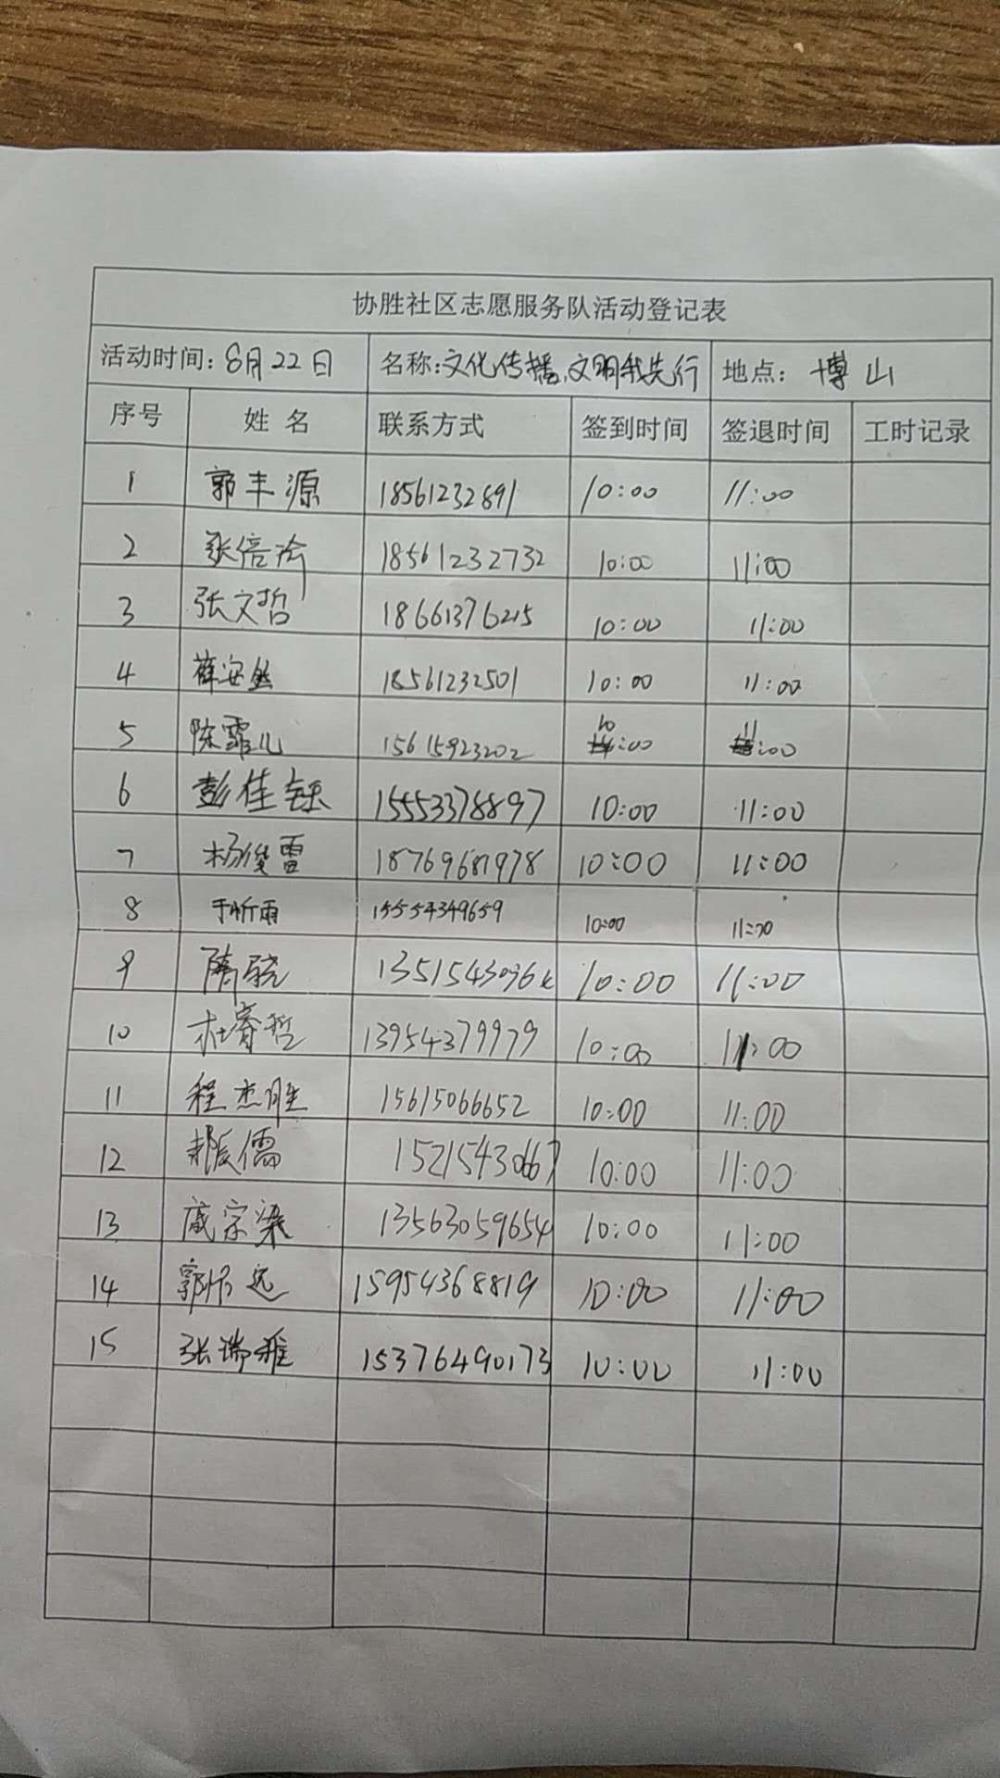 协胜社区志愿服务队活动登记表
活动时间：8月22日 名称：文化传播、文明我先行 地点：博山
序号 姓名 联系方式 签到时间 签退时间 工时记录
1 郭丰源 18561232891 10:00 11:00
2 张倍渝 18561232732 10:00 11:00
3 张文哲 18661376215 10:00 11:00
4 薛安然 18561232501 10:00 11:00
5 陈霏儿 15615923202 10:00 11:00
6 彭佳钰 15553378897 10:00 11:00
7 杨俊雷 18769681978 10:00 11:00
8 于昕雨 15554349659 10:00 11:00
9 隋骁 10:00 11:00
10 杜睿哲 13954379979 10:00 11:00
11 程杰胜 15615066652 10:00 11:00
12 儒 15215430667 10:00 11:00
13 宗梁 13563059654 10:00 11:00
14 郭 远 15954368819 10:00 11:00
15 张瑞雅 15376490173 10:00 11:00